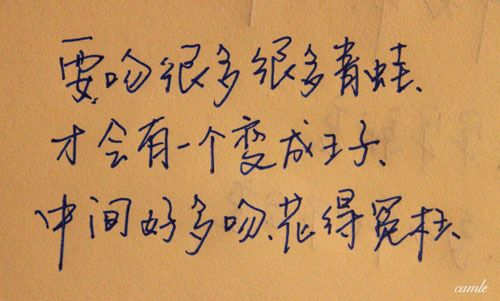 要吻很多很多青蛙、
才会有一个变成王子、
中间好多吻、花得冤枉、
camle